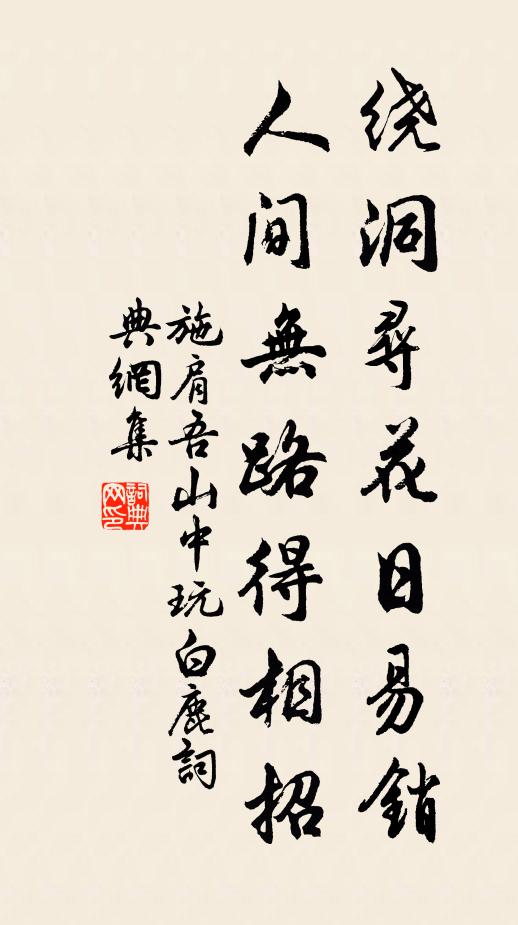 绕洞尋花日易銷
人间無路得相招
施肩吾山中玩白鹿詞
典網集
詞典網印